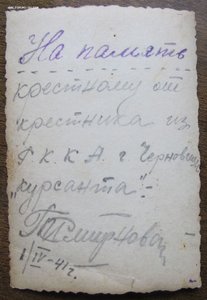 На память
крестному от
крестника из
Р.К.К.А. г. Черновцы
"курсанта".-
Т. Смирнова
1/IV-41г.